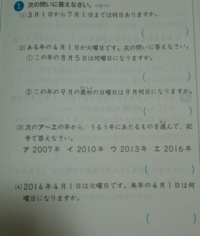 1 次の問いに答えなさい。
(1) 3月1日から7月1日までは何日ありますか。
( )
(2) ある年の4月1日が火曜日です。次の問いに答えなさい。
① この年の8月5日は何曜日になりますか。
( )
② この年の9月の最初の日曜日は9月何日になりますか。
( )
(3) 次のア〜エの年から、うるう年にあたるものを選んで、記
号で答えなさい。
ア 2007年 イ 2010年 ウ 2013年 エ 2016年
( )
(4) 2014年4月1日は火曜日です。来年の4月1日は何
曜日になりますか。
( )